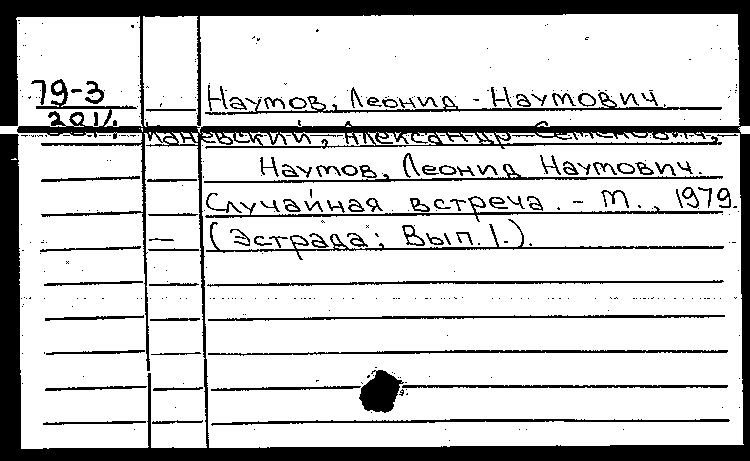 79-3
Наумов, Леонид Наумович.
3814 Каневский, Александр Семенович,
Наумов, Леонид Наумович.
Случайная встреча. - М., 1979.
(Эстрада; Вып. 1.).